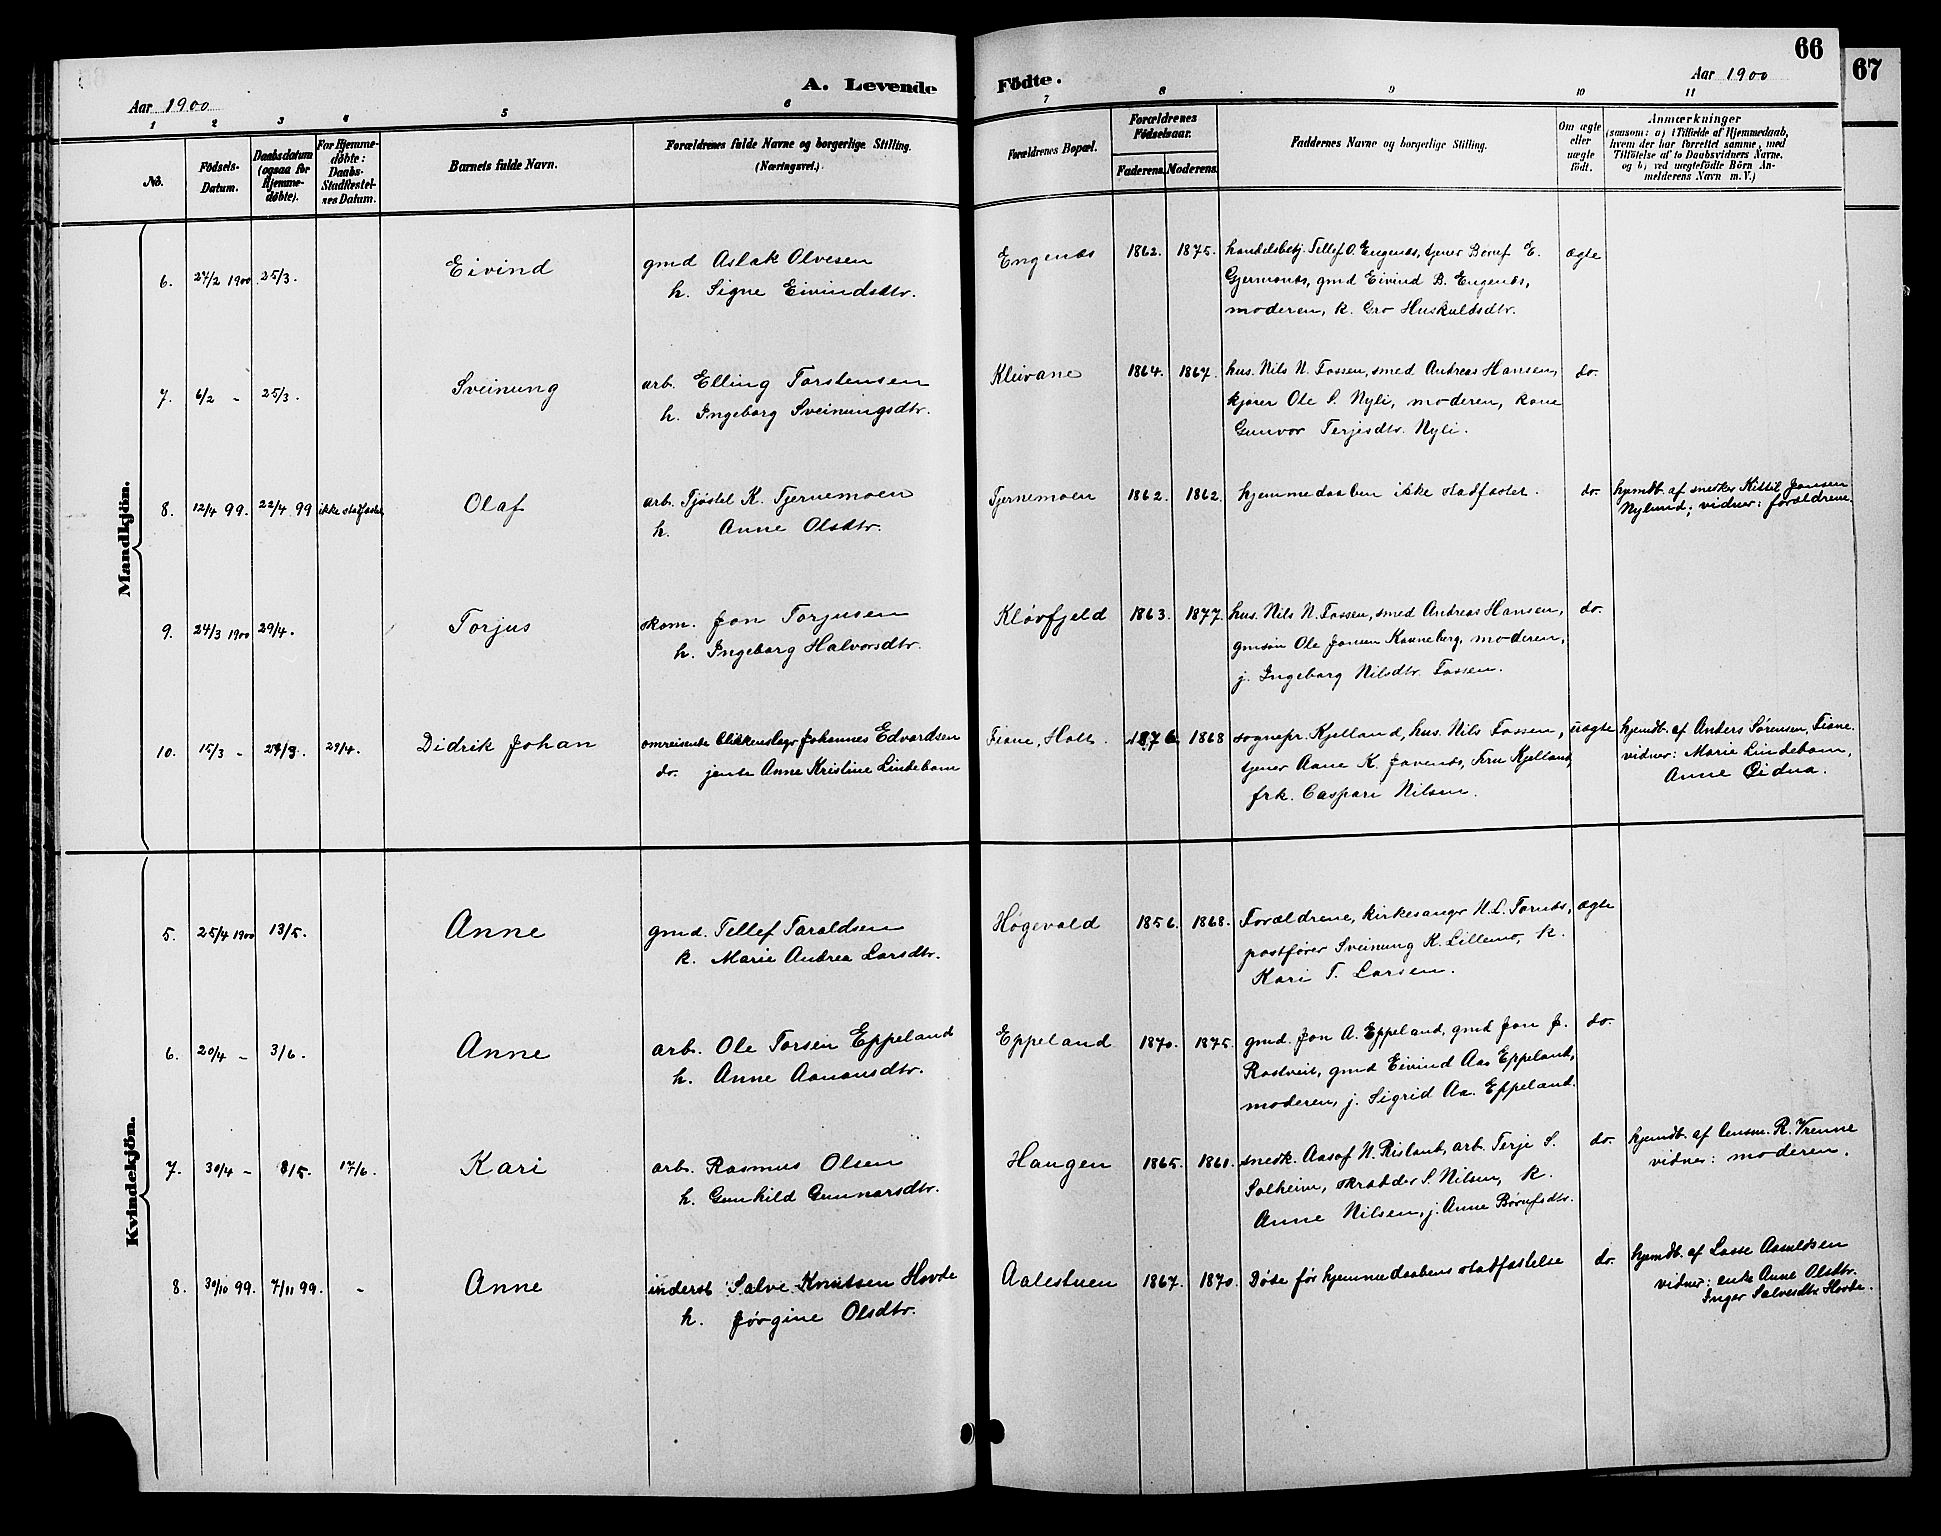 66
67
A. Levende Födte.
Aar 1900
Aar 1900
1 2 3 4 5 6 7 8 9 10 11
No.
Födsels-
Datum.
Daabsdatum
(ogsaa for
Hjemme-
døbte).
For Hjemme-
døbte:
Daabs-
Stadfæstel-
ses Datum.
Barnets fulde Navn.
Forældrenes fulde Navne og borgerlige Stilling.
(Næringsvei.)
Forældrenes Bopæl.
Forældrenes
Fødselsaar.
Faderens. Moderens.
Faddernes Navne og borgerlige Stilling.
Om ægte
eller
uægte
født.
Anmærkninger
(saasom: a) i Tilfælde af Hjemmedaab,
hvem der har forrettet samme, med
Tilføielse af to Daabsvidners Navne,
og b) ved uægtefødte Börn An-
melderens Navn m. V.)
Mandkjön.
6. 27/2 1900 25/3. Eivind gmd Aslak Olvesen Engenes 1862. 1875. handelsbetj. Tellef O. Engenes, tjener Boruf E. ægte
h. Signe Eivindsdtr. Gjermones, gmd Eivind B. Engenes,
moderen, k. Gro Huskuldsdtr.
7. 6/2 - 25/3. Sveinung arb. Elling Torstensen Kleivane 1864. 1867. hus. Nils N. Fossen, smed Andreas Hansen, do.
h. Ingeborg Sveinungsdtr. kjører Ole S. Nyli, moderen, kone
Gunvor Terjesdtr. Nyli.
8. 12/4 99. 22/4 99 ikke stadfæstet Olaf arb. Tjøstel K. Tjernemoen Tjernemoen 1862. 1862. hjemmedaaben ikke stadfæstet. do. hjemdb. af snedker Kittil Jensen
h. Anne Olsdtr. Nylund; vidner: forældrene.
9. 24/3 1900 29/4. Torjus skom. Jon Torjusen Kløvfjeld 1863. 1877. hus. Nils N. Fossen, smed Andreas Hansen, do.
h. Ingeborg Halvorsdtr. gmsøn Ole Jensen Kanneberg, moderen,
j. Ingeborg Nilsdtr. Fossen.
10. 15/3 - 29/4. Didrik Johan omreisende blikkenslager Johannes Edvardsen Fiane, Holt. 1876 1868 sognepr. Kjelland, hus. Nils Fossen, uægte hjemdb. af Anders Sørensen, Fiane.
do. jente Anne Kristine Lindebom tjener Aane K. Jovenes, Fru Kjelland, vidner: Marie Lindebom,
frk. Caspari Nilsen. Anne Gidua.
Kvindekjön.
5. 25/4 1900 13/5. Anne gmd. Tellef Taraldsen Høgevold 1856. 1868. Forældrene, kirkesanger N. L. Tornes, ægte
k. Marie Andrea Larsdtr. postfører Sveinung K. Lillemo, k.
Kari T. Larsen.
6. 20/4 - 3/6. Anne arb. Ole Torsen Eppeland Eppeland 1870. 1875. gmd. Jon A. Eppeland, gmd Jon J. do.
h. Anne Aanonsdtr. Rostveit, gmd Eivind Aas Eppeland,
moderen, j. Sigrid Aa. Eppeland.
7. 30/4 - 8/5. 17/6. Kari arb. Rasmus Olsen Haugen 1865. 1861. snedk. Aasof N. Risland, arb. Terje S. do. hjemdb. af lensm. R. Vrenne
h. Gunhild Gunnarsdtr. Solheim, skrædder S. Nilsen, k. vidner: moderen.
Anne Nilsen, j. Anne Børufsdtr.
8. 30/10 99. 7/11 99. - Anne inderst Salve Knutsen Hovde Aalestuen 1867. 1870. Døde før hjemmedaabens stadfæstelse do. hjemdb. af Lasse Aasuldsen
h. Jørgine Olsdtr. vidner: enke Anne Olsdtr.
Inger Salvesdtr Hovde.